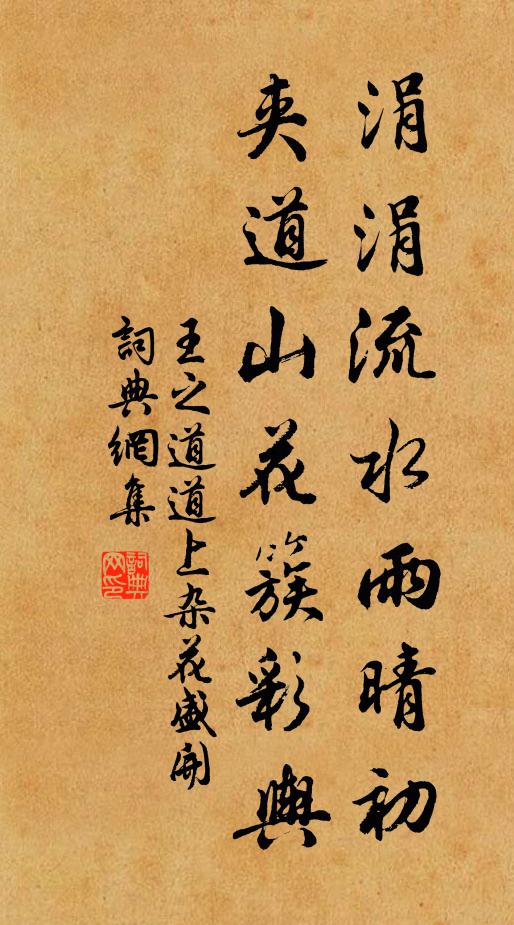 涓涓流水雨晴初
夾道山花簇彩輿
王之道道上杂花盛開
詞典網集
詞典網印